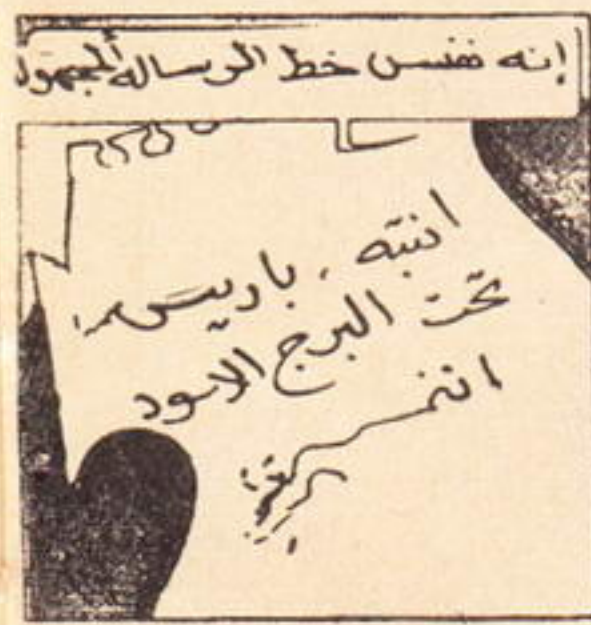 إنه نفس خط الرسالة ألمجهول
انتبه ، باريس
تحت البرج الاسود